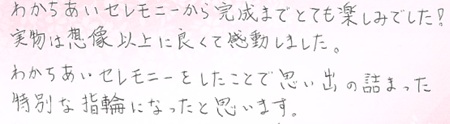 わかちあいセレモニーから完成までとても楽しみでした!
実物は想像以上に良くて感動しました。
わかちあいセレモニーをしたことで思い出の詰まった
特別な指輪になったと思います。